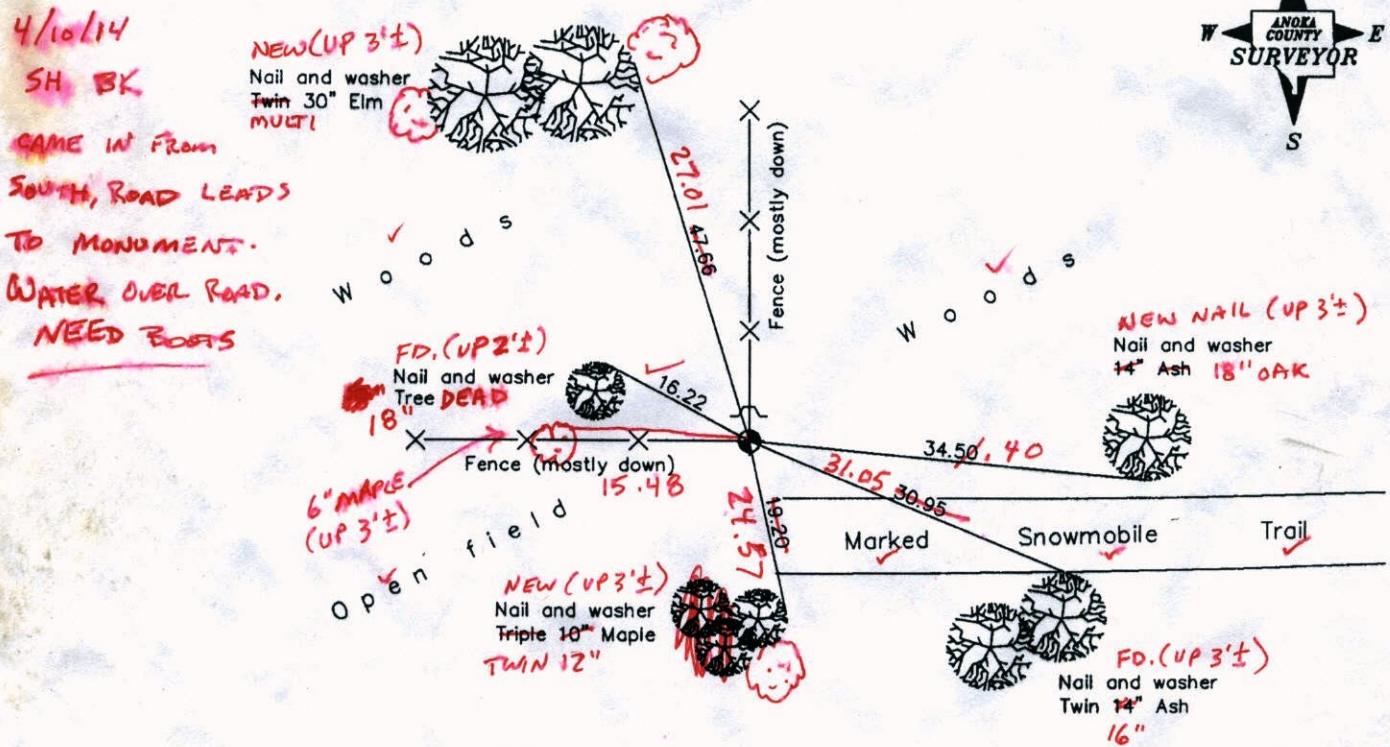 4/10/14
SH BK
CAME IN FROM
SOUTH, ROAD LEADS
TO MONUMENT.
WATER OVER ROAD.
NEED BOOTS
NEW (UP 3'±)
Nail and washer
Twin 30" Elm
MULTI
W ANOKA COUNTY E
SURVEYOR
S
27.01 47.66
Fence (mostly down)
Woods
Woods
FD. (UP 2'±)
Nail and washer
Tree DEAD
18"
16.22
NEW NAIL (UP 3'±)
Nail and washer
14" Ash 18" OAK
Fence (mostly down)
15.48
34.50 .40
31.05 30.95
6" MAPLE
(UP 3'±)
Open field
24.57 19.20
Marked Snowmobile Trail
NEW (UP 3'±)
Nail and washer
Triple 10" Maple
TWIN 12"
FD. (UP 3'±)
Nail and washer
Twin 14" Ash
16"